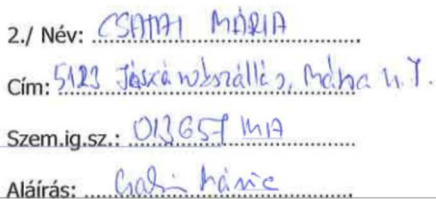 2./ Név: CSATAI MÁRIA
Cím: 5123 Jászárokszállás, u. 7.
Szem.ig.sz.: 013657 MA
Aláírás: Mária